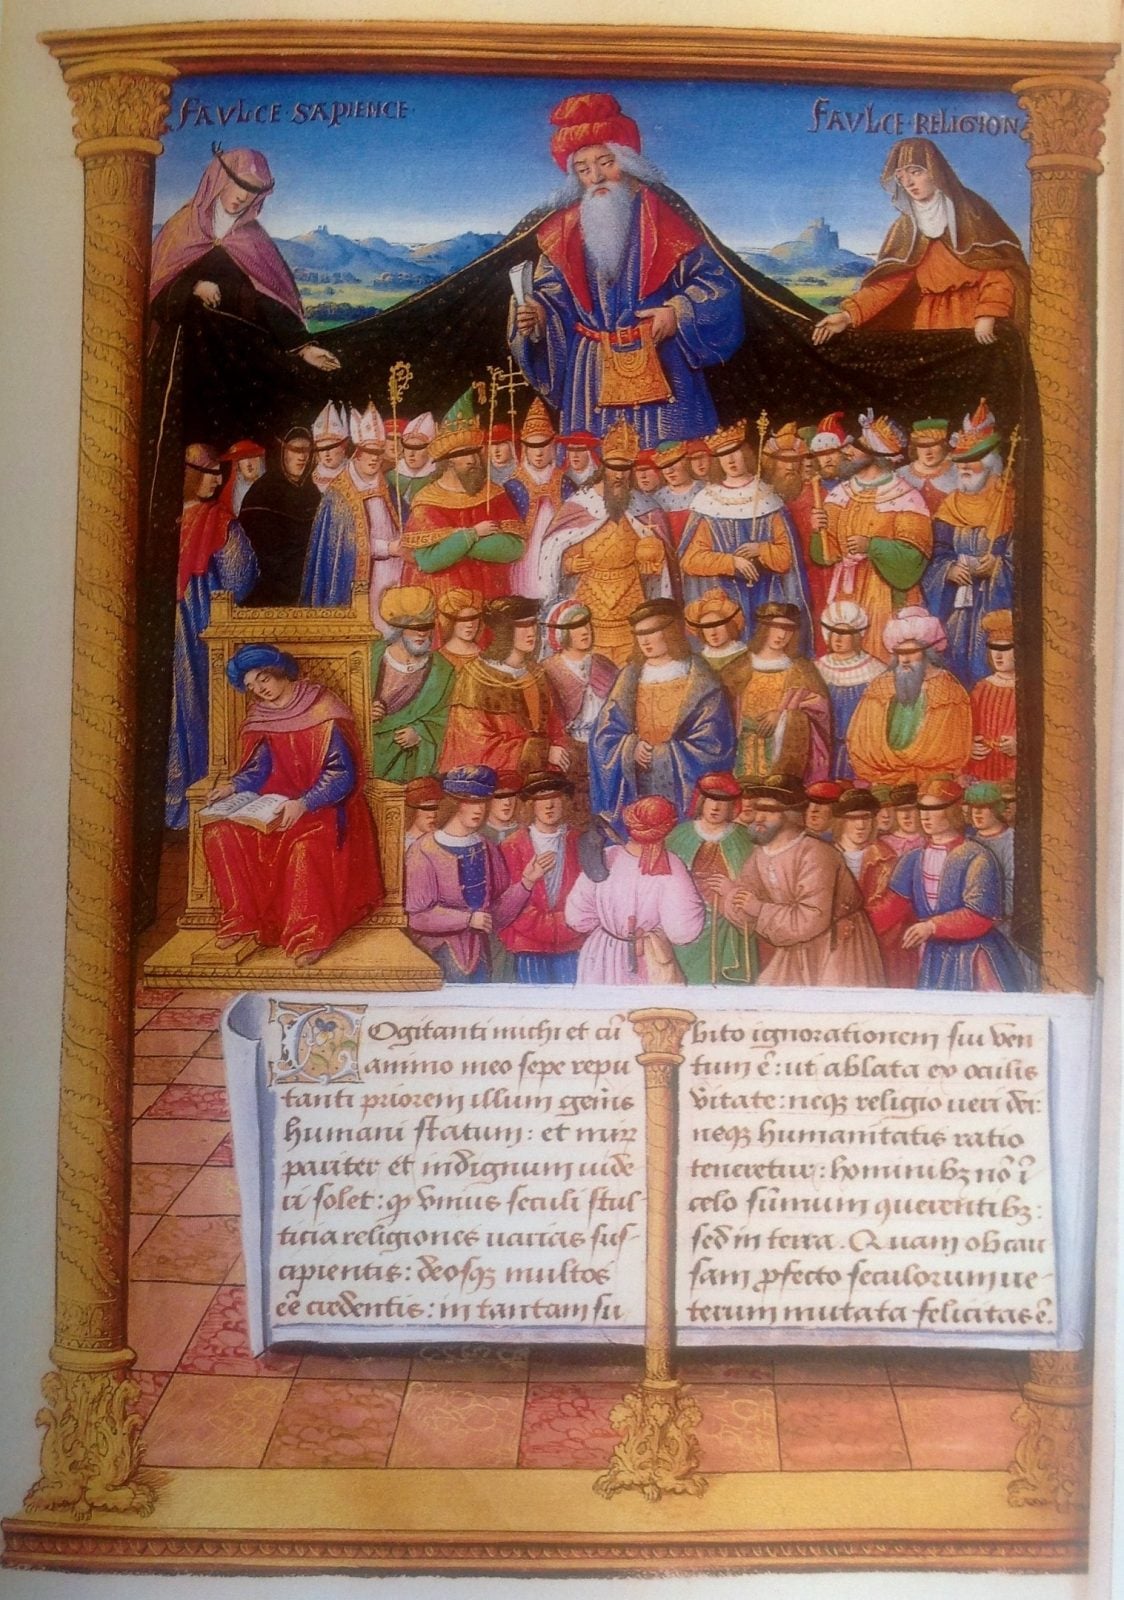 FAVLCE·SAPIENCE·
FAVLCE·RELIGION
COgitanti michi et cū
animo meo sepe repu
tanti priorem illum gen̄is
humani statum: et mirꝫ
pariter et indignum uide
ri solet: ꝙ vnius seculi stul
ticia religiones uarias sus-
cipientis: deosqꝫ multos
eē credentis: in tantam su
bito ignorationem sui ven
tum ē: ut ablata ex oculis
v̄itate: neqꝫ religio ueri dei:
neqꝫ humanitatis ratio
teneretur: hominibꝫ nō ī
celo sūmum querentibꝫ:
sed in terra. Quam ob cau
sam ꝓfecto seculorum ue-
terum mutata felicitas ē.